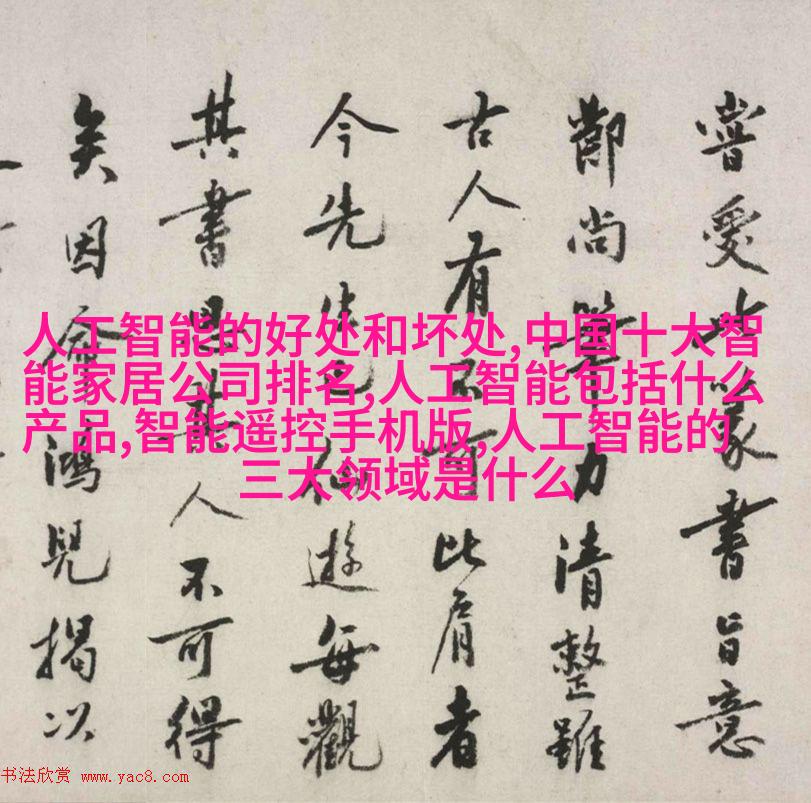 嘗愛篆書旨意
尚筆力清整雖
古人有比肩者
今先生已仙遊每觀
其書思其人不可得
矣因命鴻兒揭以
人工智能的好处和坏处,中国十大智
能家居公司排名,人工智能包括什么
产品,智能遥控手机版,人工智能的
三大领域是什么
书法欣赏 www.yac8.com